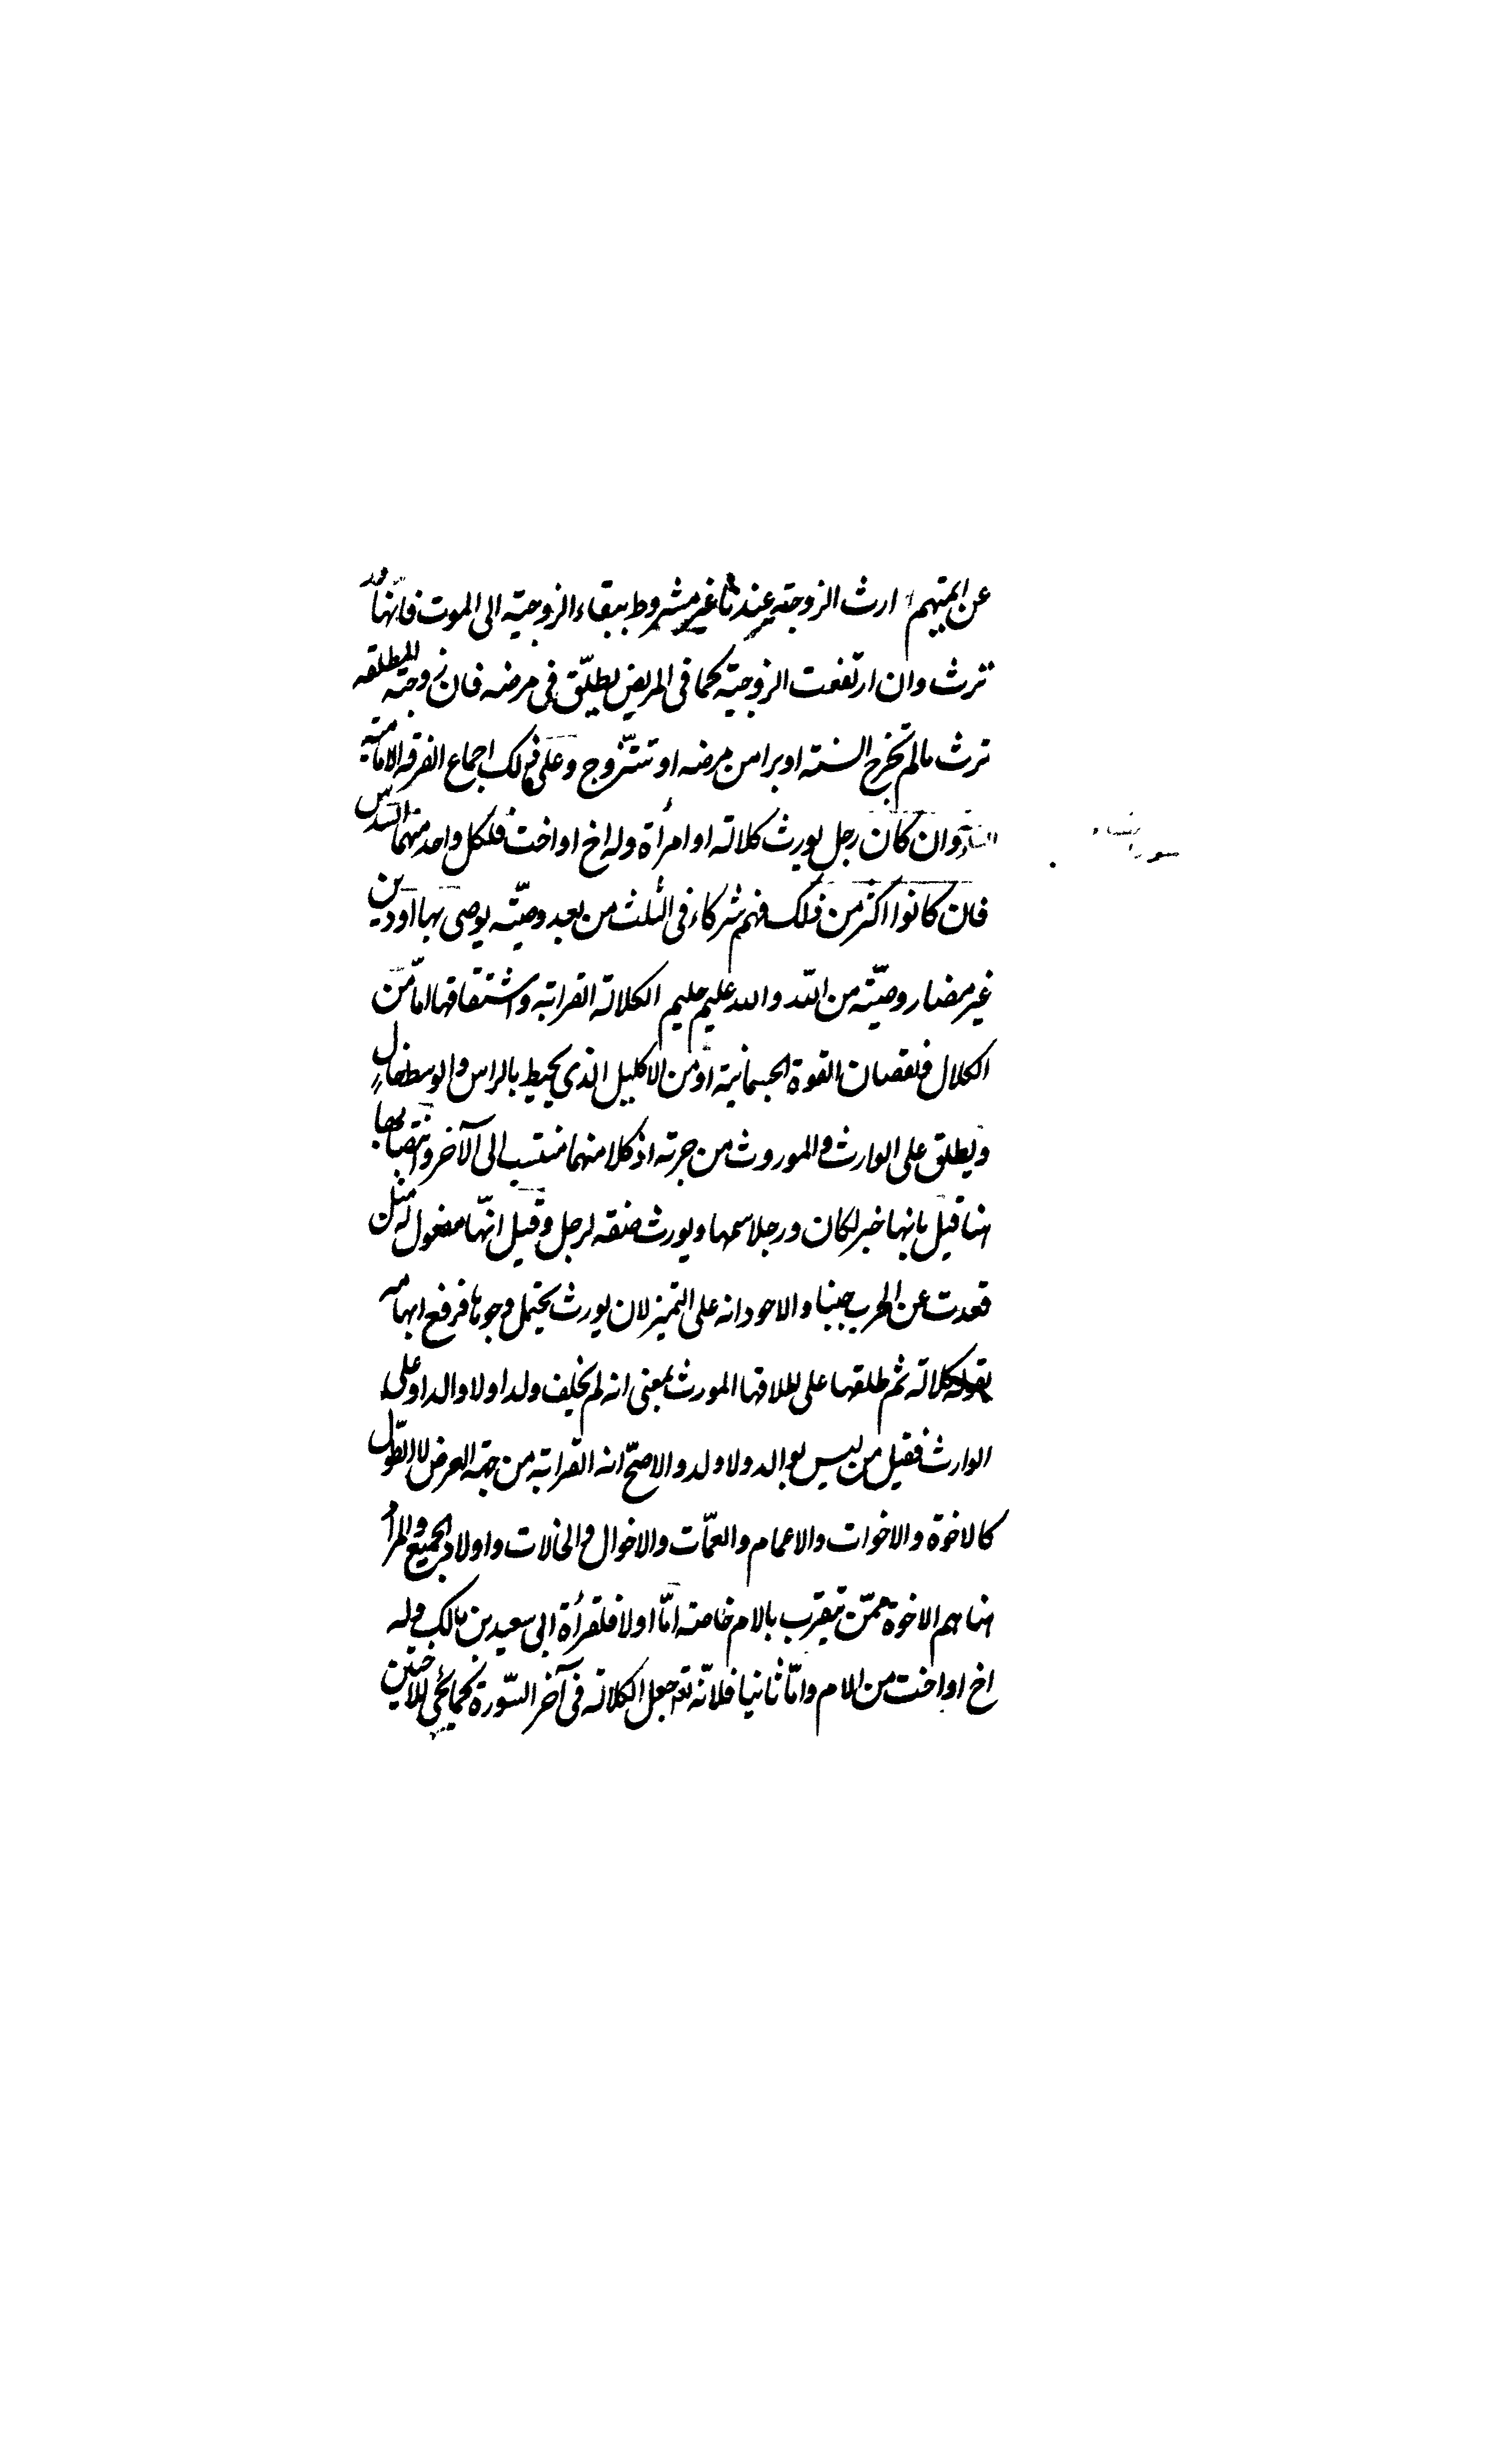 عن ائمتهم ارث الزوجة عندنا غير مشروط ببقاء الزوجية الى الموت فانها قد
ترث وان ارتفعت الزوجية كما فى المريض يطلّق فى مرضه فان زوجته المطلقه
ترث مالم تخرج السنة او برا من مرضه او تتزوّج وعلى ذلك اجماع الفرقه الامامية
وان كان رجل يورث كلالة او امرأة وله اخ او اخت فلكل واحد منهما السّدس
فان كانوا اكثر من ذلك فهم شركاء فى الثلث من بعد وصيّة يوصى بها او دين
غير مضار وصيّة من اللّه والله عليم حليم الكلالة القرابة واشتقاقها امّا من
الكلال فنقصان القوة الجسمانية او من الاكليل الذى يحيط بالراس والوسط خال
ويطلق على الوارث والموروث من جهته اذ كلا منهما منتسب الى الآخر وانتصابها
هنا قيل بانها خبر لكان ورجلا سمها ويورث صفة لرجل وقيل انّها مفعول له مثل
قعدت عن الحرب جبنا والاجود انه على التميز لان يورث يحتمل وجوها فرفع ابهامه
بقوله كلالة ثم طلقها على اطلاقها المورث بمعنى انه لم يخلف ولدا ولا والدا وعلى
الوارث فقيل من ليس بوالد ولا ولد والاصحّ انه القرابة من جهة العرض لا الطّول
كالاخوة والاخوات والاعمام والعمّات والاخوال والخالات واولاد الجميع والمراد
هنا هم الاخوة ممّن يتقرب بالام خاصة امّا اولا فلقرأة ابى سعيد بن مالك وله
اخ او اخت من الام وامّا ثانيا فلانّه تعه جعل الكلالة فى آخر السّورة كما يجئ للاختين
سورة النساء